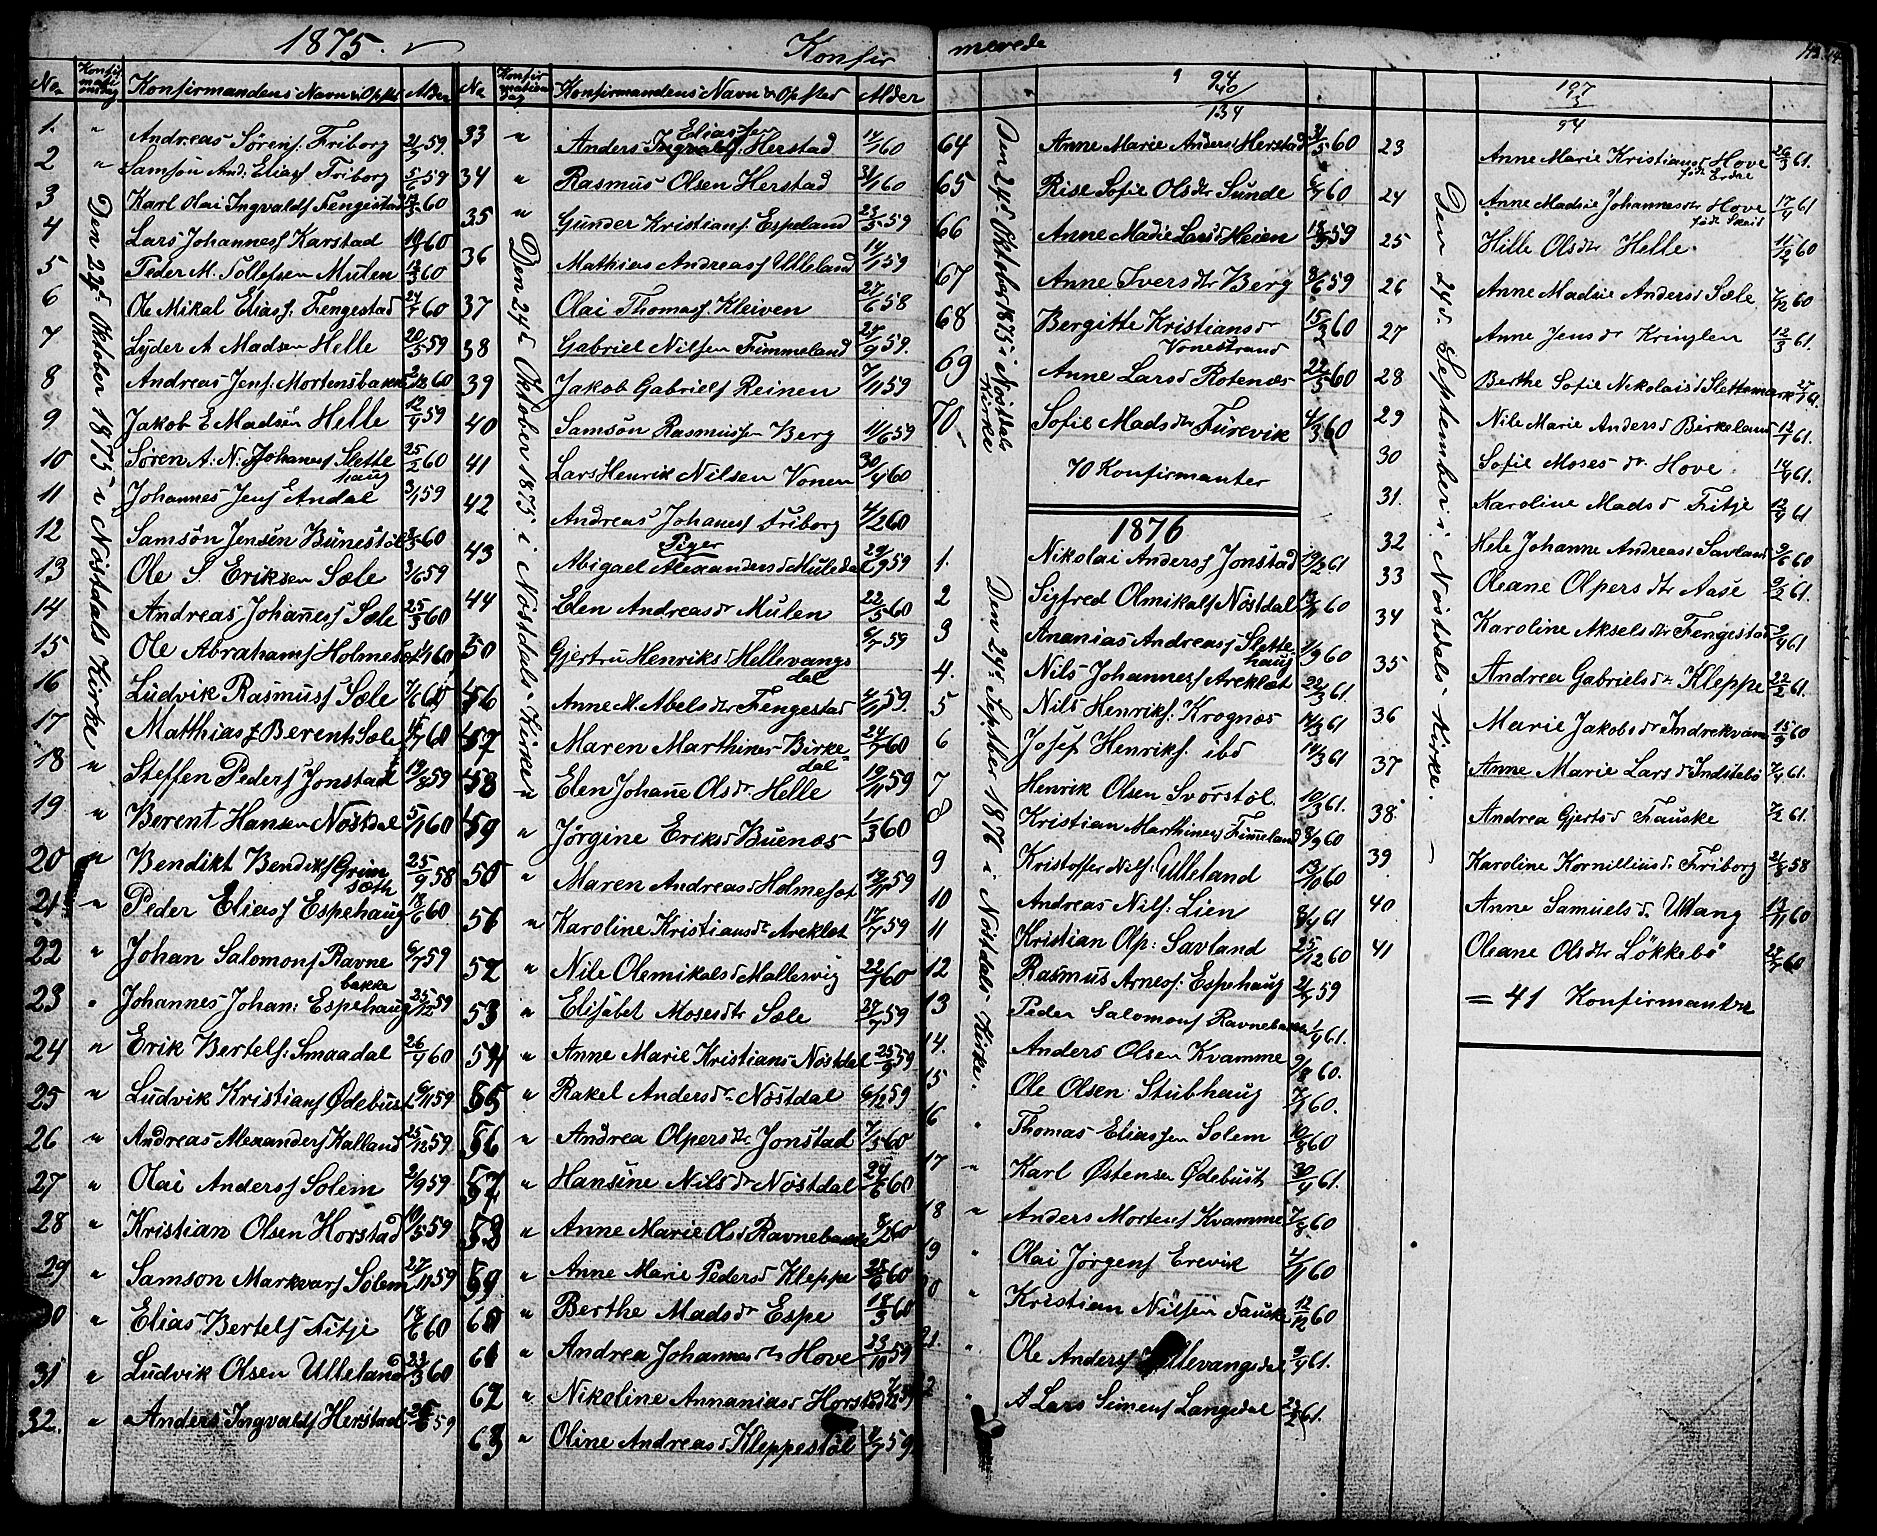 1875.
Konfir
No.
Konfirmationsdag
Konfirmandens Navn & Opsted
Alder
Den 24d Oktober 1875 i Nöstdals Kirke
1. Andreas Sörens. Friborg 21/9 59.
2 Samson And. Elias. Friborg 5/6 59
3 Karl Olai Ingvalds Fengestad 60
4 Lars Johannes Karstad 60
5 Peder M. Tollefsen Mulen 60
6 Ole Mikal Elias. Fengestad 60
7 Lyder A. Madsen Helle 20/5 59
8 Andreas Jens. Mortensbakke 60
9 Jakob E Madsen Helle 12/9 59
10 Sören A. N. Johannes Slette
haug 25/2 60
11 Johannes Jens Andal 3/1 59
12 Samson Jensen Bunestöl 60
13 Ole S. Eriksen Sæle 3/6 59
14 Andreas Johannes Sæle 25/3 60
15 Ole Abrahams Holmeset 60
16 Ludvik Rasmus Sæle 60
17 Matthias J Berents Sæle 60
18 " Steffen Peders Jonstad 19/8 59
19 " Berent Hansen Nöstdal 5/1 60
20 " Bendikt Bendiks Grim
sæth 25/9 58
21 " Peder Elias Espehaug 18/6 60
22 " Johan Salomons Ravne
bakke 6/7 59
23 " Johannes Johan: Espehaug 25/12 59
24 " Erik Bertels: Smaadal 26/4 60
25 " Ludvik Kristians Ødebust 6/11 59
26 " Andreas Alexanders Kalland 25/12 59
27 " Olai Anders Solem 2/9 59
28 " Kristian Olsen Horstad 10/5 59
29 " Samson Markvars Solem 27/11 59
30 " Elias Bertels Fitje 18/6 60
31 " Ludvik Olsen Ulleland 23/3 60
32. " Anders Ingvalds Herstad 59
No
Konfirmationsdag
Konfirmandens Navn & Opsted
Alder
Den 24d Oktober 1875 i Nöstdals Kirke
33 " Eliassen
Anders Ingvalds Herstad 14/1 60
34 " Rasmus Olsen Herstad 31/1 60
35 " Gunder Kristians. Espeland 23/5 59
36 Mathias Andreas Ulleland 14/1 59
37 Olai Thomas Kleiven 27/6 58
38 Gabriel Nilsen Fimmeland 24/9 59.
39 Jakob Gabriels Reinen 7/11 59
40 Samson Rasmussen Berg 11/6 59
41 Lars Henrik Nilsen Vonen 30/4 60
42 Andreas Johanes Friborg 4/2 60
Piger
43 Abigael Alexanders d Muledal 29/9 59
44 Elen Andreas dr Mulen 22/5 60
50 Gjertru Henriks d Hellevangs
dal 6/7 59
Anne M. Abels dtr Fengestad 4/11 59.
Maren Marthines Birke
dal 24/7 60
" Elen Johane Ols dr Helle 19/11 59
" Jörgine Eriks d Buenæs 1/3 60
50 " Maren Andreas d Holmeset 59
" Karoline Kristians dr Areklet 17/7 59
52 " Nile Olemikals d Mallesvig 22/7 60
53 " Elisabet Moses dtr Sæle 27/7 59
54 " Anne Marie Kristians Nöstdal 25/9 59
55 " Rakel Anders dr Nöstdal 6/12 59
56 " Andrea Olpers dtr Jonstad 7/5 60
57 " Hansine Nils dr Nöstdal 24/6 60
58 " Anne Marie Ols d Ravnebakke 8/2 60
59 " Anne Marie Peders d Kleppe 28/6 60
60 " Berthe Mads dr Espe 18/3 60
61 " Andrea Johannes dr Hove 23/10 59
62 " Nikoline Annanias d Horstad
63 " Oline Andreas d Kleppestöl 2/7 59
merede
94
40
134
Den 24d Oktober 1875 i Nöstdals Kirke
64 Anne Marie Anders d Herstad 31/5 60
65 Rise Sofie Ols dtr Sunde 60
66 Anne Madie Lars d Heien 59
67 Anne Ivers dtr Berg 8/6 59
68 Bergitte Kristians d
Vonestrand 15/2 60
69 Anne Lars d Rotenæs 22/5 60
70. Sofie Mads dtr Furevik 4/3 60
70 Konfirmanter
1876
Den 24d September 1876 i Nöstdals Kirke.
1. Nikolai Anders Jonstad 19/2 61
2 Sigfred Olmikals Nöstdal 60
3 Ananias Andreas Slette
haug 1/9 60
4. Nils Johannes Areklæt 22/3 61.
5 Nils Henriks: Krognæs 14/3 61
6 Josef Henriks. ibd 14/3 61
7 Henrik Olsen Svörstöl. 10/3 61.
8 Kristian Marthines Fimeland 8/9 60
9 Kristoffer Nils: Ulleland 13/10 60
10 Andreas Nils: Lien 8/4 61
11 Kristian Olp: Savland 25/12 60
12 Rasmus Arnes: Espehaug 59
13 Peder Salomons Ravnebakke 1/4 61.
14. Anders Olsen Kvamme 9/8 60.
15 Ole Olsen Stubhaug 60.
16 " Thomas Eliassen Solem 10/8 60
17 " Karl Østensen Ødebust 30/4 61.
18 " Anders Mortens Kvamme 7/8 60
19 " Olai Jörgens Erevik 2/11 60
20 " Kristian Nilsen Fauske 12/12 60
21. " Ole Anders Hellevangsdal 9/4 61.
22 " A Lars Simens Langedal 23/2 61.
197
3
94
Den 24d. September i Nöstdals Kirke.
23 Anne Marie Kristians d Hove
født Erdal 26/3 61.
24 Anne Madsie Johannes dtr Hove
født Skeid 17/4 61
25 Hille Ols dtr Helle 60
26 Anne Madsie Anders d Sæle 7/12 60
27 Anne Jens dr Kringlen 12/3 61.
28 Berthe Sofie Nikolais d Slettemark 61.
29 Nile Marie Anders d Birkeland 61.
30 Sofie Moses dr. Hove 14/4 61.
31. Karoline Mads d Fitje 12/4 61
32 Hele Johanne Andreas d Savland 60
33 Oleane Olpers dtr Aase 9/2 61.
34 Karoline Aksels dtr Fengestad 9/4 61
35 Andrea Gabriels dr Kleppe 22/2 61.
36 Marie Jakobs dr Indrekvam 15/9 60
37 Anne Marie Lars d Indstebö 7/4 61.
38. Andrea Gjerts d Fauske 7/2 61.
39 Karoline Kornillius d Friborg 58
40. Anne Samuels dr Uttang 13/11 60
41 Oleane Ols dtr Lökkebö 60
= 41 Konfirmanter